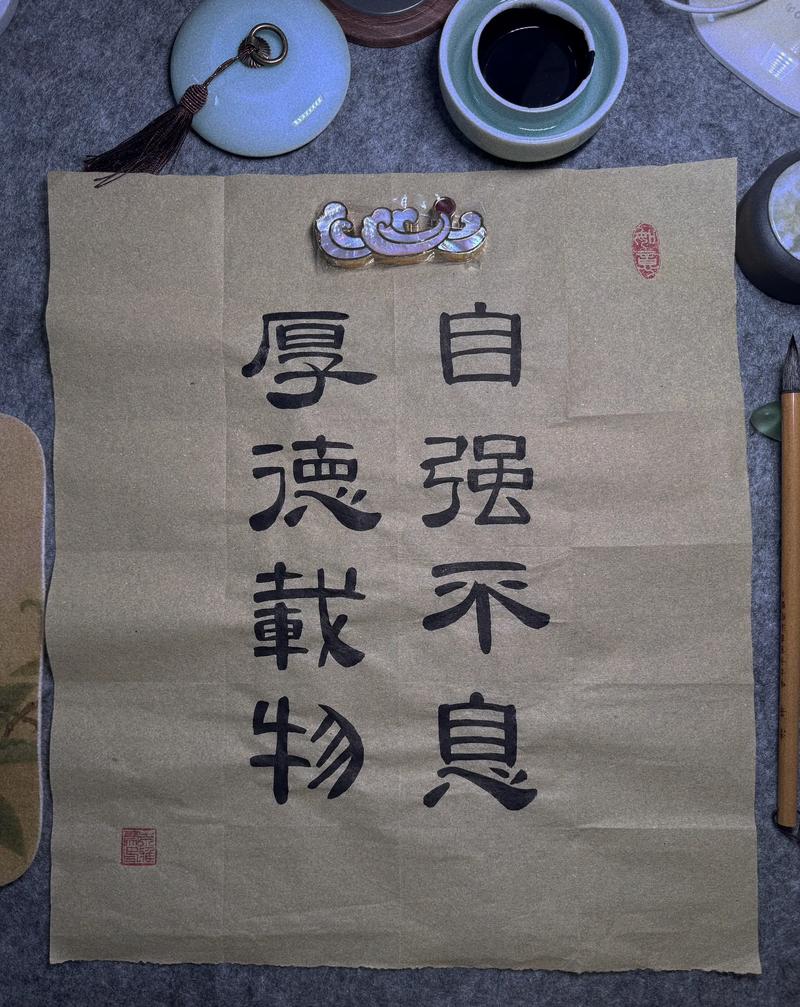 自强不息
厚德載物
如意